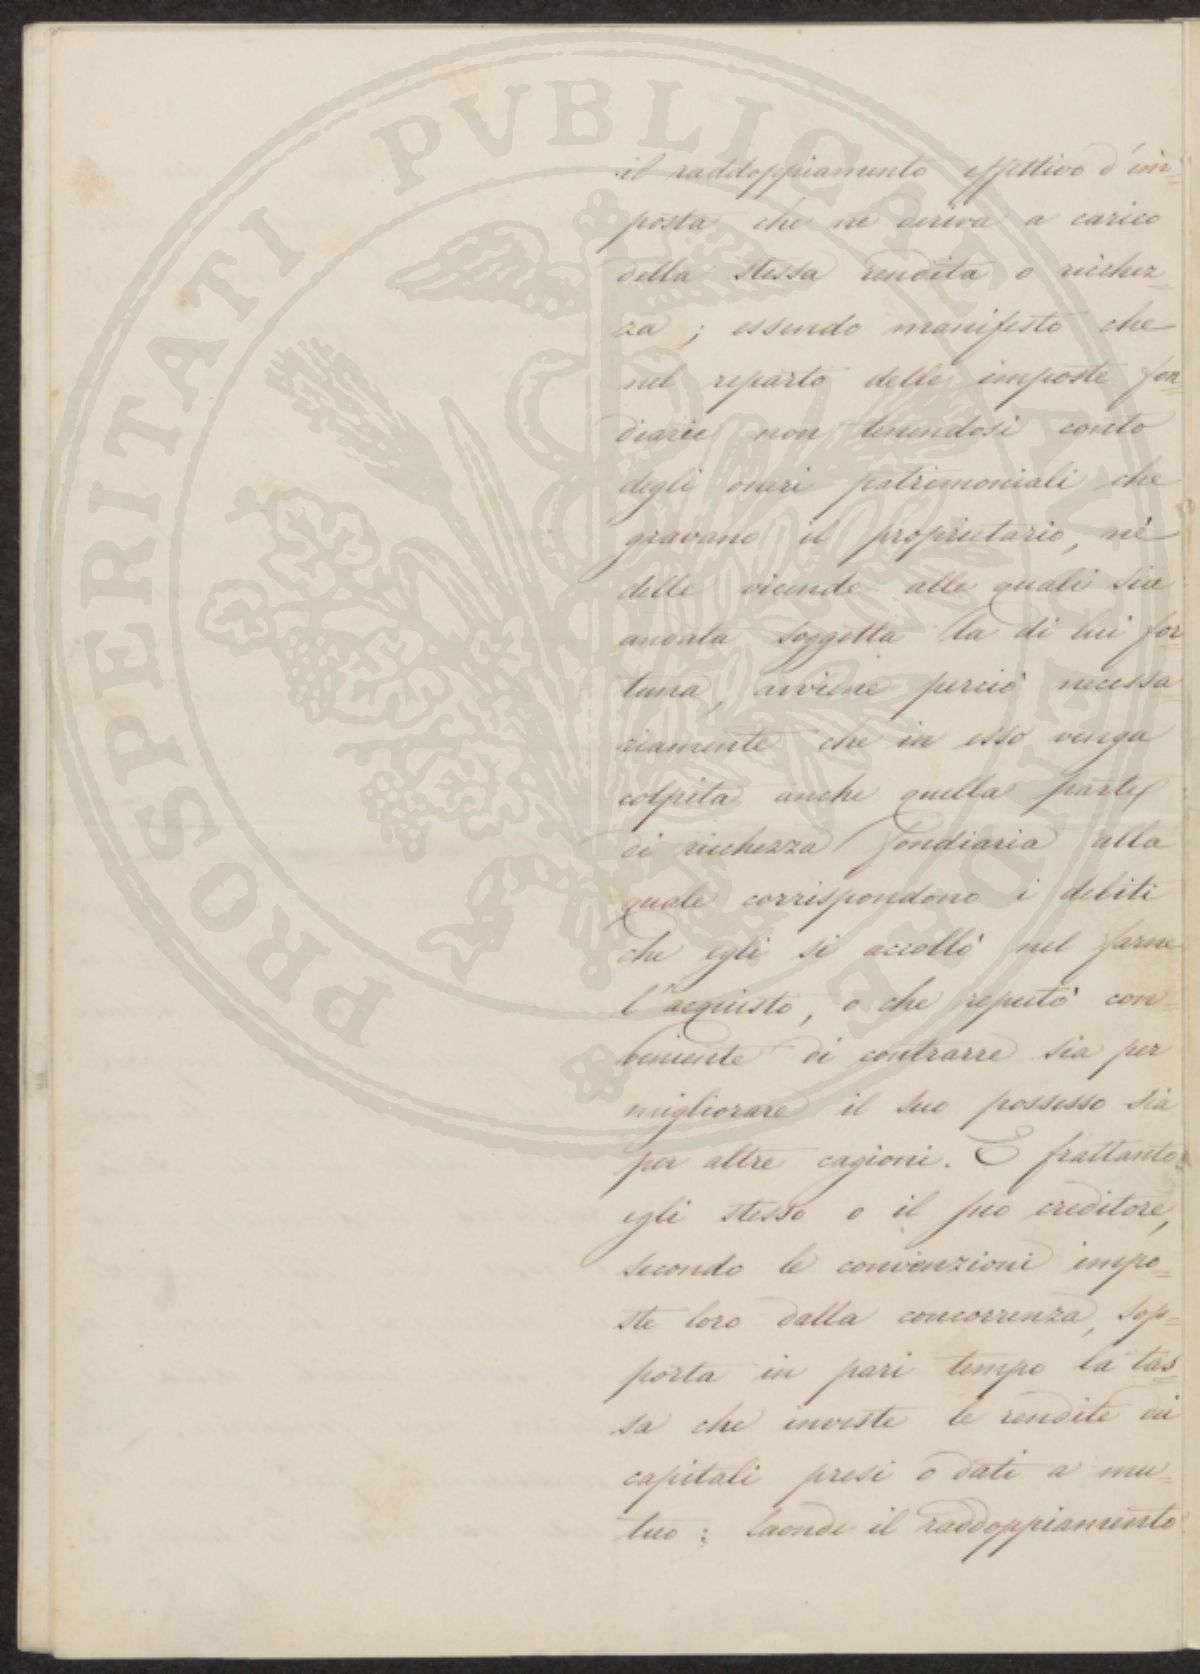 PROSPERITATI PUBLICAE AUGENDAE
il raddoppiamento effettivo d'im=
posta che ne deriva a carico
della stessa rendita o ricchez=
za ; essendo manifesto che
nel reparto delle imposte fon=
diarie non tenendosi conto
degli oneri patrimoniali che
gravano il proprietario, nè
delle vicende alle quali sia
andata soggetta la di lui for=
tuna, avviene perciò necessa=
riamente che in esso venga
colpita anche quella parte
di ricchezza fondiaria alla
quale corrispondono i debiti
che egli si accollò nel farne
l'acquisto, o che reputò con=
veniente di contrarre sia per
migliorare il suo possesso sia
per altre cagioni. E frattanto
egli stesso o il suo creditore,
secondo le convenzioni impo=
ste loro dalla concorrenza, sop=
porta in pari tempo la tas=
sa che investe le rendite dei
capitali presi o dati a mu=
tuo ; laonde il raddoppiamento